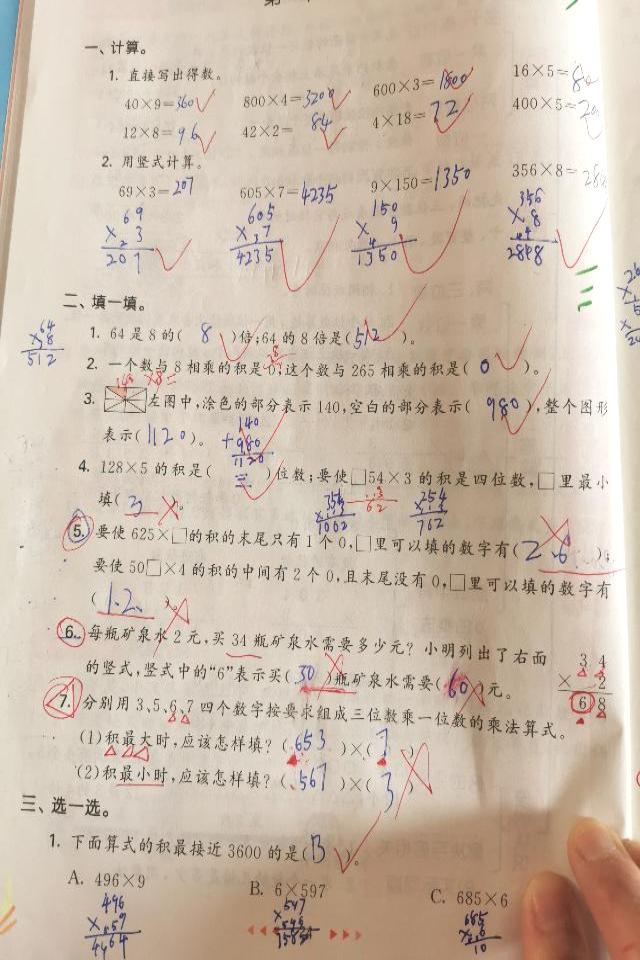 一、计算。
1. 直接写出得数。
40×9=360 800×4=3200 600×3=1800 16×5=80
12×8=96 42×2=84 4×18=72 400×5=
2. 用竖式计算。
69×3=207 605×7=4235 9×150=1350 356×8=
69 605 150 356
×3 ×7 ×9 ×8
207 4235 1350 2848
二、填一填。
64
×8
512
1. 64是8的(8)倍;64的8倍是(512)。
2. 一个数与8相乘的积是0,这个数与265相乘的积是(0)。
140 ×8=
3. 左图中,涂色的部分表示140,空白的部分表示(980),整个图形
表示(1120)。
140
+980
1120
4. 128×5的积是(三)位数;要使□54×3的积是四位数,□里最小
填(3)。
354 254
×3 ×3
1062 762
5. 要使625×□的积的末尾只有1个0,□里可以填的数字有(2.6);
要使50□×4的积的中间有2个0,且末尾没有0,□里可以填的数字有
(1.2.)。
6. 每瓶矿泉水2元,买34瓶矿泉水需要多少元?小明列出了右面
的竖式,竖式中的“6”表示买(30)瓶矿泉水需要(60)元。
34
×2
68
7. 分别用3、5、6、7四个数字按要求组成三位数乘一位数的乘法算式。
(1)积最大时,应该怎样填?(653)×(7)
(2)积最小时,应该怎样填?(567)×(3)
三、选一选。
1. 下面算式的积最接近3600的是(B)。
A. 496×9 B. 6×597 C. 685×6
496
4464
685